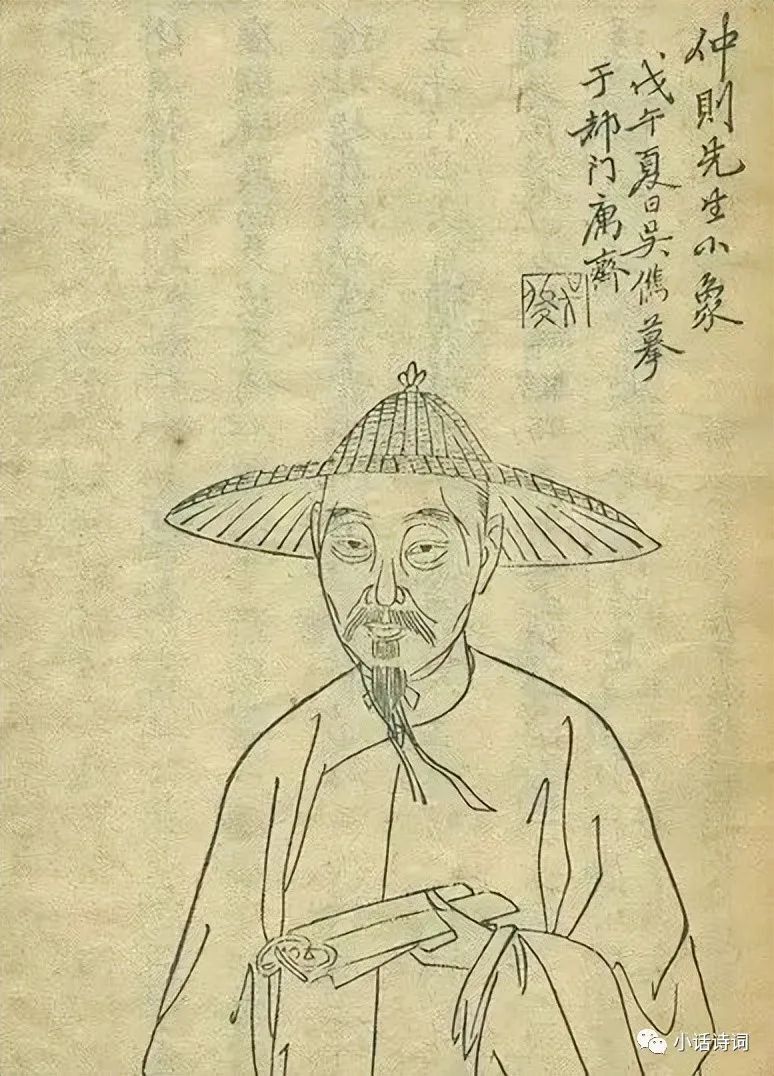 仲則先生小象
戊午夏日吳儁摹
于都门庸齋
小话诗词